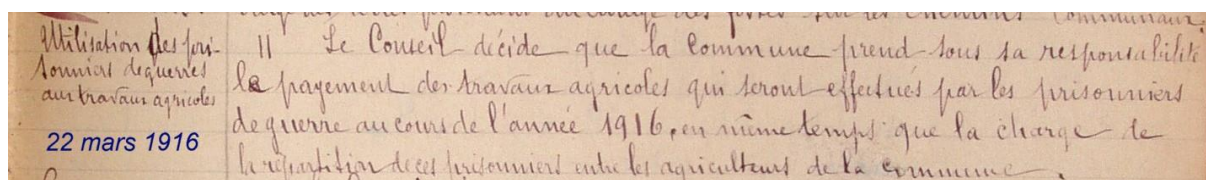 des fossés sur les chemins communaux.
Utilisation des pri-
sonniers de guerres
aux travaux agricoles
22 mars 1916
11 Le Conseil décide que la Commune prend sous sa responsabilité
le payement des travaux agricoles qui seront effectués par les prisonniers
de guerre au cours de l'année 1916, en même temps que la charge de
la répartition de ces prisonniers entre les agriculteurs de la commune.